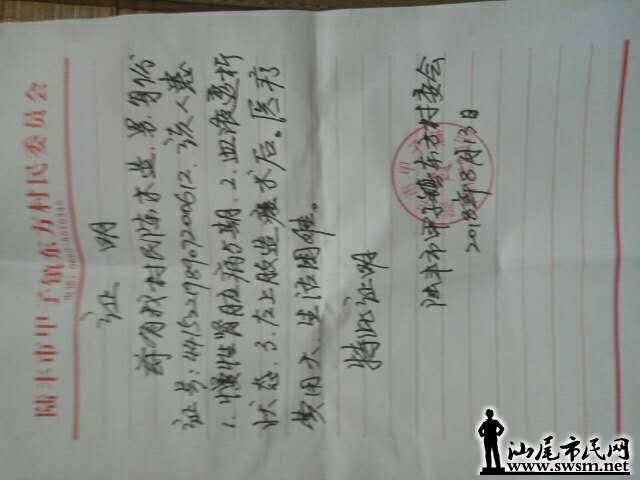 陆丰市甲子镇东方村民委员会
证 明
兹有我村民陈木业，男，身份
证号：44152278907200612，该人患
1.慢性肾脏病5期，2.血液透析
状态。3.左上肢造瘘术后。医疗
费用大、生活困难。
特此证明
陆丰市甲子镇东方村委会
2018年8月13日
汕尾市民网
www.swsm.net